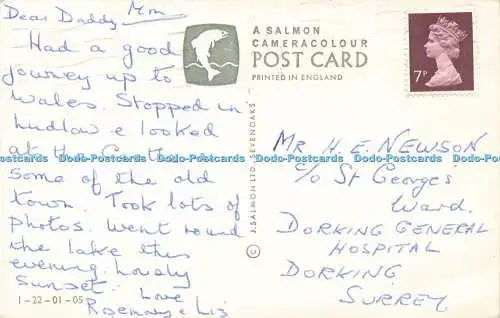 Dear Daddy & Mm
Had a good
journey up to
Wales. Stopped in
Ludlow & looked
at the Castle &
some of the old
town. Took lots of
photos. Went round
the lake this
evening. Lovely
sunset.
Love
Rosemary & Liz
1-22-01-05
A SALMON
CAMERACOLOUR
POST CARD
PRINTED IN ENGLAND
© J. SALMON LTD. SEVENOAKS
7P
MR. H. E. NEWSON
c/o St George's
Ward.
DORKING GENERAL
HOSPITAL
DORKING
SURREY
Dodo-Postcards Dodo-Postcards Dodo-Postcards Dodo-Postcards Dodo-Postcards Dodo-Postcards Dodo-Postcards